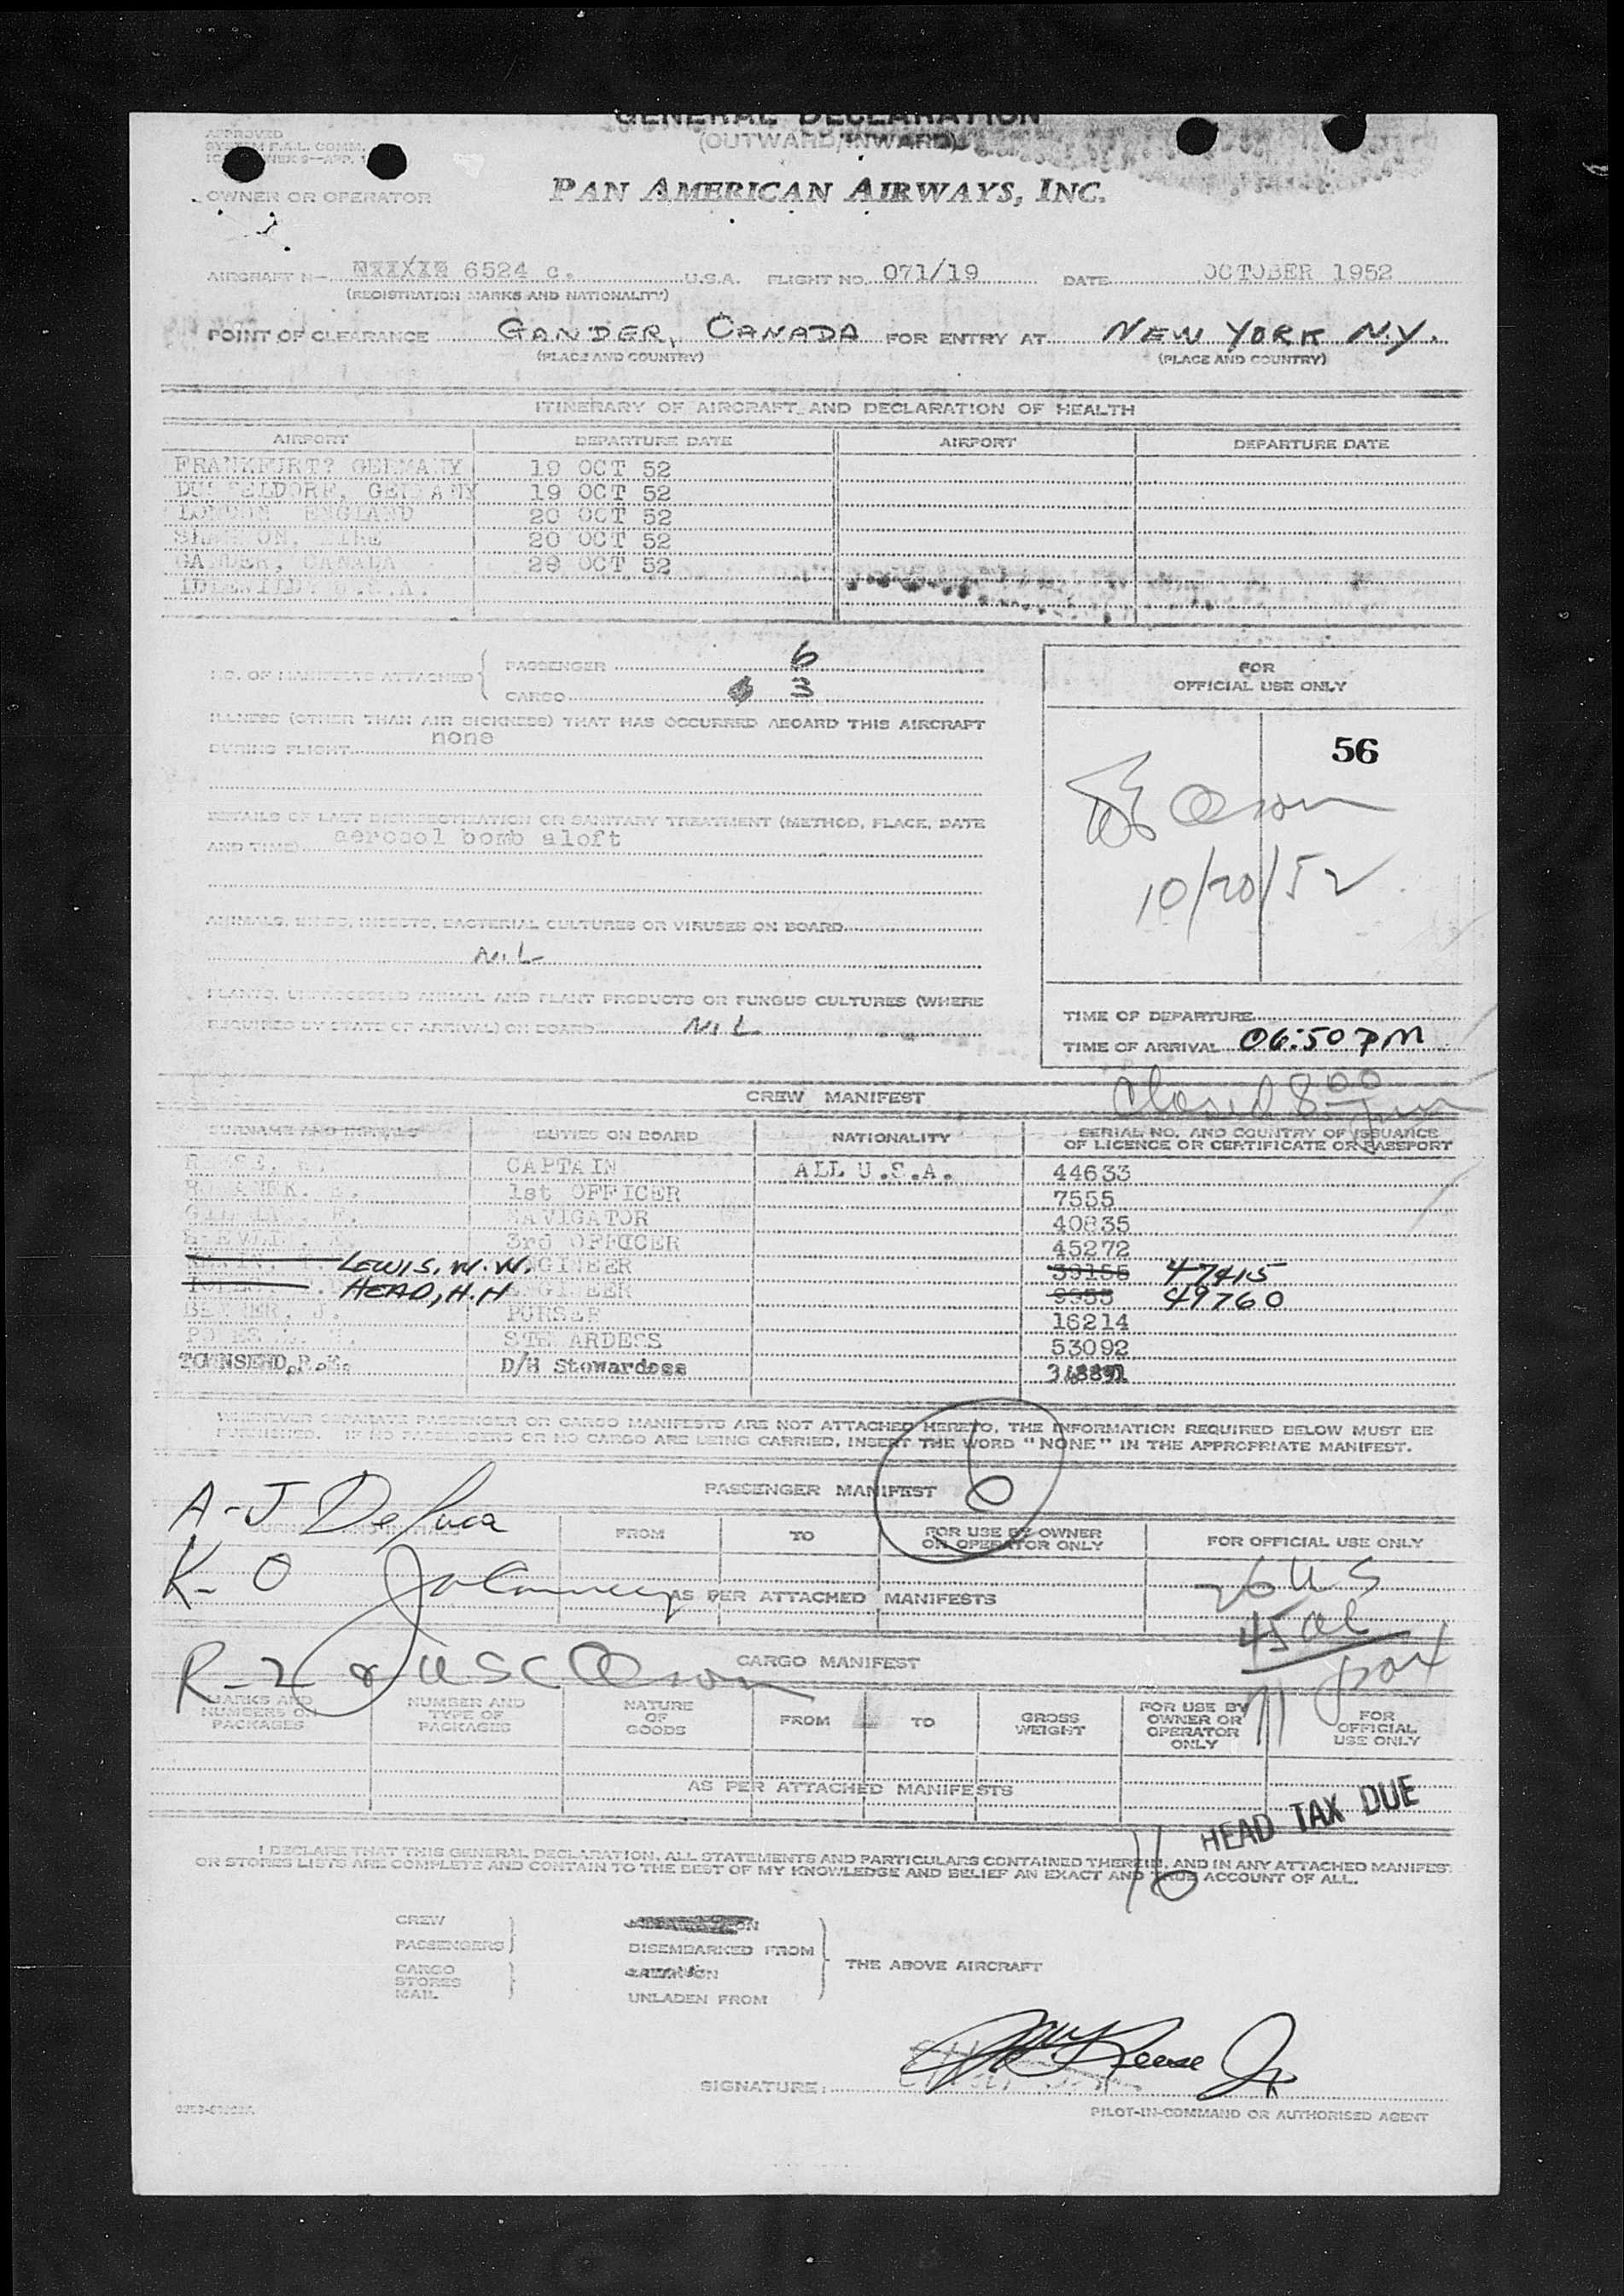 GENERAL DECLARATION
(OUTWARD/INWARD)
APPROVED
SYSTEM F.A.L. COMM.
OWNER OR OPERATOR PAN AMERICAN AIRWAYS, INC.
AIRCRAFT N— 6524 C. U.S.A. FLIGHT NO. 071/19 DATE OCTOBER 1952
(REGISTRATION MARKS AND NATIONALITY)
POINT OF CLEARANCE GANDER, CANADA FOR ENTRY AT NEW YORK N.Y.
(PLACE AND COUNTRY) (PLACE AND COUNTRY)
ITINERARY OF AIRCRAFT AND DECLARATION OF HEALTH
AIRPORT DEPARTURE DATE AIRPORT DEPARTURE DATE
FRANKFURT? GERMANY 19 OCT 52
DUSSELDORF, GERMANY 19 OCT 52
LONDON ENGLAND 20 OCT 52
SHANNON, EIRE 20 OCT 52
GANDER, CANADA 20 OCT 52
IDLEWILD, U.S.A.
NO. OF MANIFESTS ATTACHED { PASSENGER 6
CARGO 3
FOR
OFFICIAL USE ONLY
ILLNESS (OTHER THAN AIR SICKNESS) THAT HAS OCCURRED ABOARD THIS AIRCRAFT
DURING FLIGHT none
56
DETAILS OF LAST DISINSECTIZATION OR SANITARY TREATMENT (METHOD, PLACE, DATE
AND TIME) aerosol bomb aloft
10/20/52
ANIMALS, BIRDS, INSECTS, BACTERIAL CULTURES OR VIRUSES ON BOARD
NIL
PLANTS, UNPROCESSED ANIMAL AND PLANT PRODUCTS OR FUNGUS CULTURES (WHERE
REQUIRED BY STATE OF ARRIVAL) ON BOARD NIL
TIME OF DEPARTURE
TIME OF ARRIVAL 06:50 PM
Closed 8:00 pm
CREW MANIFEST
SURNAME AND INITIALS DUTIES ON BOARD NATIONALITY SERIAL NO. AND COUNTRY OF ISSUANCE
OF LICENCE OR CERTIFICATE OR PASSPORT
CAPTAIN ALL U.S.A. 44633
1st OFFICER 7555
NAVIGATOR 40835
3rd OFFICER 45272
LEWIS, W.W. ENGINEER 39155 47415
HEAD, H.H ENGINEER 9955 49760
PURSER 16214
STEWARDESS 53092
TOWNSEND, R.E. D/H Stewardess
WHENEVER SEPARATE PASSENGER OR CARGO MANIFESTS ARE NOT ATTACHED HERETO, THE INFORMATION REQUIRED BELOW MUST BE
FURNISHED. IF NO PASSENGERS OR NO CARGO ARE BEING CARRIED, INSERT THE WORD "NONE" IN THE APPROPRIATE MANIFEST.
PASSENGER MANIFEST 6
A-J DeLuca
SURNAME AND INITIALS FROM TO FOR USE BY OWNER
OR OPERATOR ONLY FOR OFFICIAL USE ONLY
K-0
26 US
AS PER ATTACHED MANIFESTS
45 al
71 pax
CARGO MANIFEST
R-2
MARKS AND
NUMBERS ON
PACKAGES NUMBER AND
TYPE OF
PACKAGES NATURE
OF
GOODS FROM TO GROSS
WEIGHT FOR USE BY
OWNER OR
OPERATOR
ONLY FOR
OFFICIAL
USE ONLY
AS PER ATTACHED MANIFESTS
16 HEAD TAX DUE
I DECLARE THAT THIS GENERAL DECLARATION, ALL STATEMENTS AND PARTICULARS CONTAINED THEREIN, AND IN ANY ATTACHED MANIFEST
OR STORES LISTS ARE COMPLETE AND CONTAIN TO THE BEST OF MY KNOWLEDGE AND BELIEF AN EXACT AND TRUE ACCOUNT OF ALL.
CREW
PASSENGERS
DISEMBARKED FROM
THE ABOVE AIRCRAFT
CARGO
STORES
MAIL
UNLADEN FROM
SIGNATURE: Reese Jr.
PILOT-IN-COMMAND OR AUTHORISED AGENT